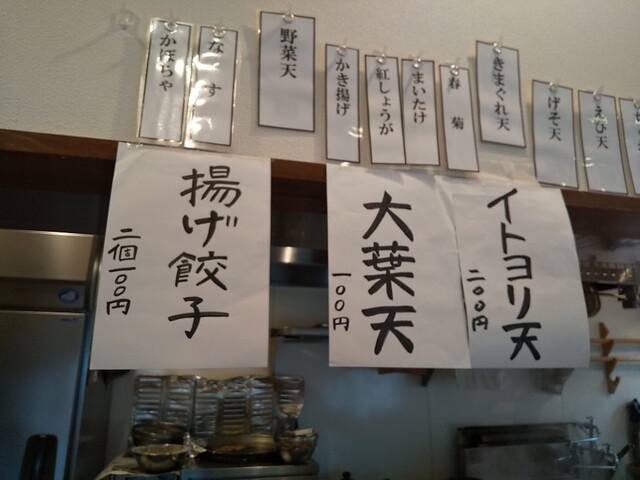 かぼちゃ
なす
野菜天
かき揚げ
紅しょうが
まいたけ
春菊
きまぐれ天
げそ天
えび天
揚げ餃子
二個一〇〇円
大葉天
一〇〇円
イトヨリ天
二〇〇円